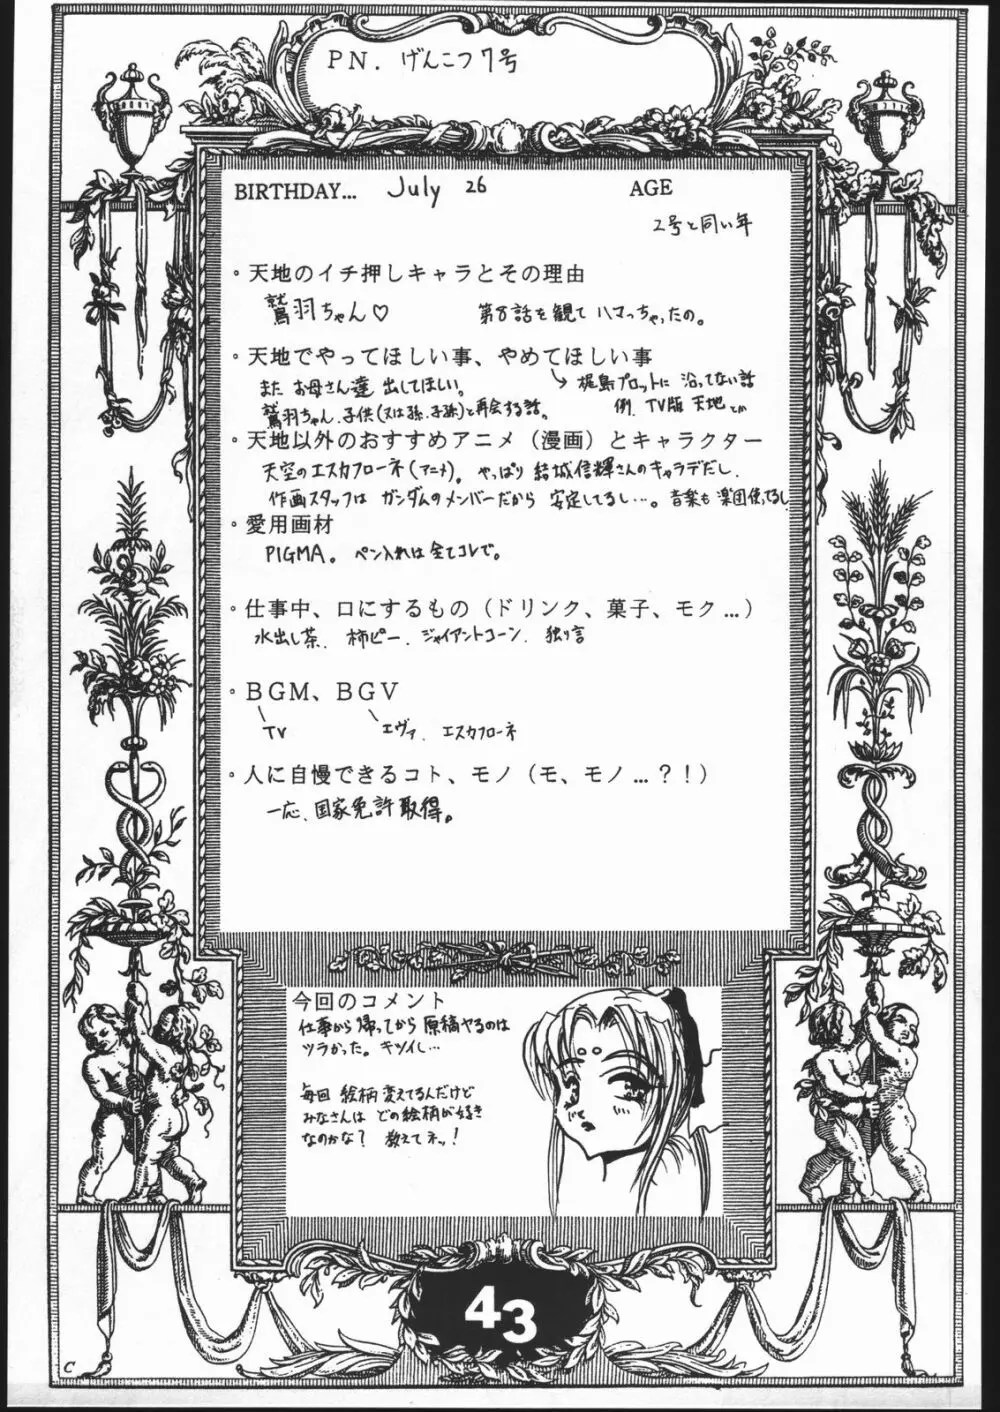 PN. げんこつ7号
BIRTHDAY... July 26 AGE
2号と同い年
・天地のイチ押しキャラとその理由
鷲羽ちゃん♡ 第8話を観て ハマっちゃったの。
しゅう
・天地でやってほしい事、やめてほしい事
また お母さん達 出してほしい。
鷲羽ちゃん、子供(又は孫、子孫)と再会する話。
梶島プロットに 沿ってない話
例、TV版 天地とか
・天地以外のおすすめアニメ（漫画）とキャラクター
天空のエスカフローネ(アニメ)。やっぱり 結城信輝さんのキャラデだし、
作画スタッフは ガンダムのメンバーだから 安定してるし…。音楽も 楽団使ってるし
・愛用画材
PIGMA。ペン入れは全てコレで。
・仕事中、口にするもの（ドリンク、菓子、モク…）
水出し茶、柿ピー、ジャイアントコーン、独り言
・BGM、BGV
TV エヴァ、エスカフローネ
・人に自慢できるコト、モノ（モ、モノ…？！）
一応、国家免許取得。
今回のコメント
仕事から帰ってから 原稿やるのは
ツラかった。キツイし…
毎回 絵柄 変えてるんだけど
みなさんは どの絵柄が好き
なのかな？ 教えてネッ！
43
C